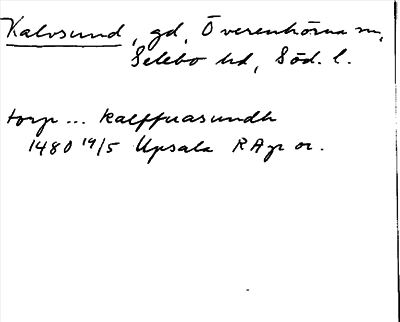 Kalvsund, gd, Överenhörna sn,
Selebo hd, Söd. l.
torp ... kalffuasundh
1480 19/5 Upsala RAp or.